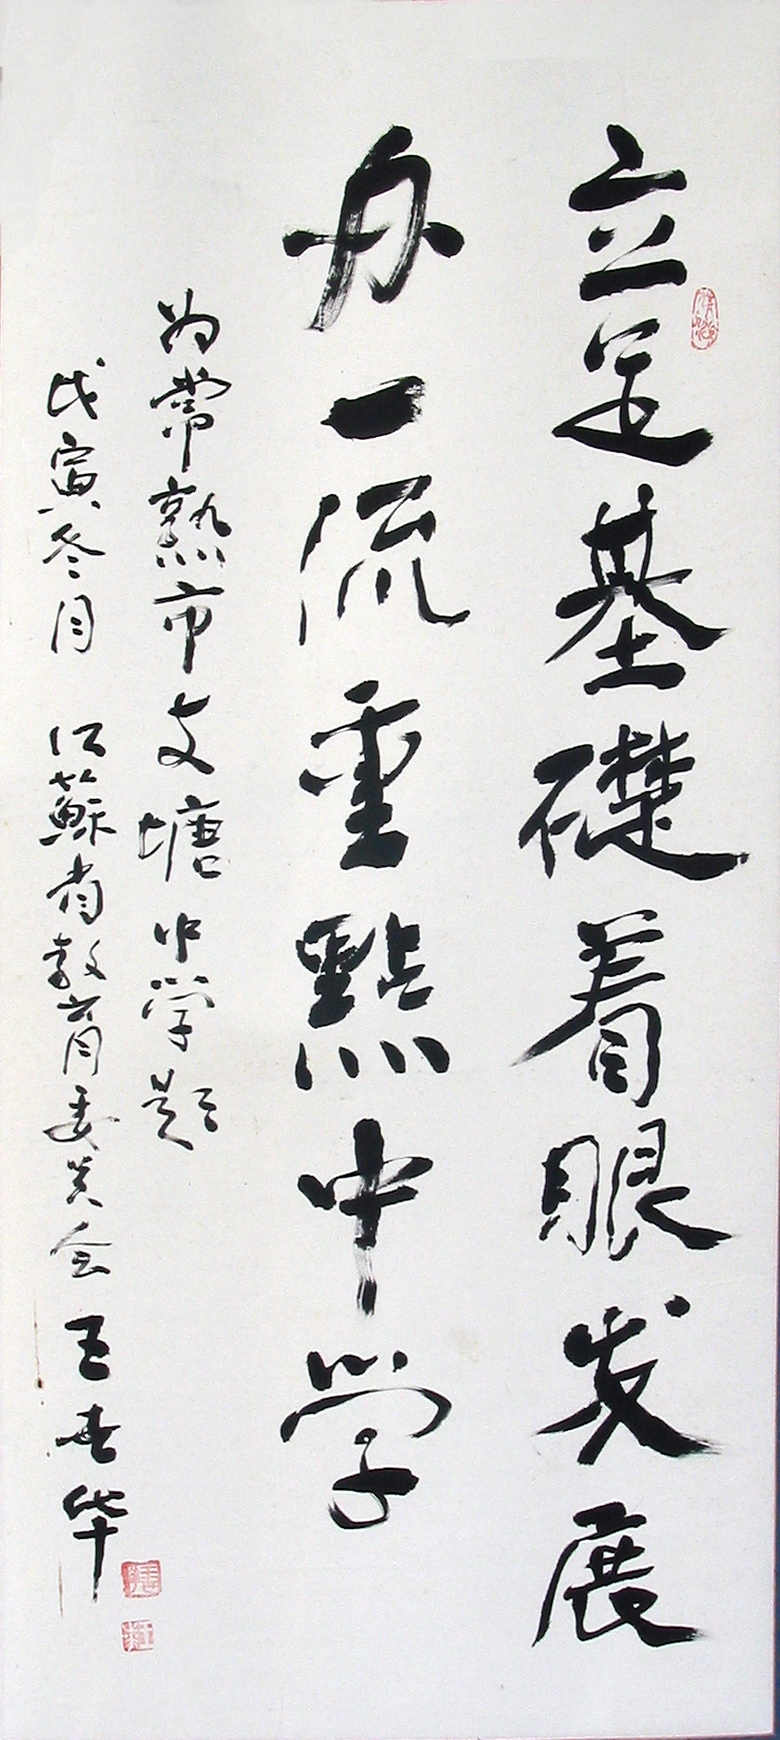 立足基礎着眼发展
办一流重點中学
为常熟市支塘中学题
戊寅冬月 江蘇省教育委员会 王